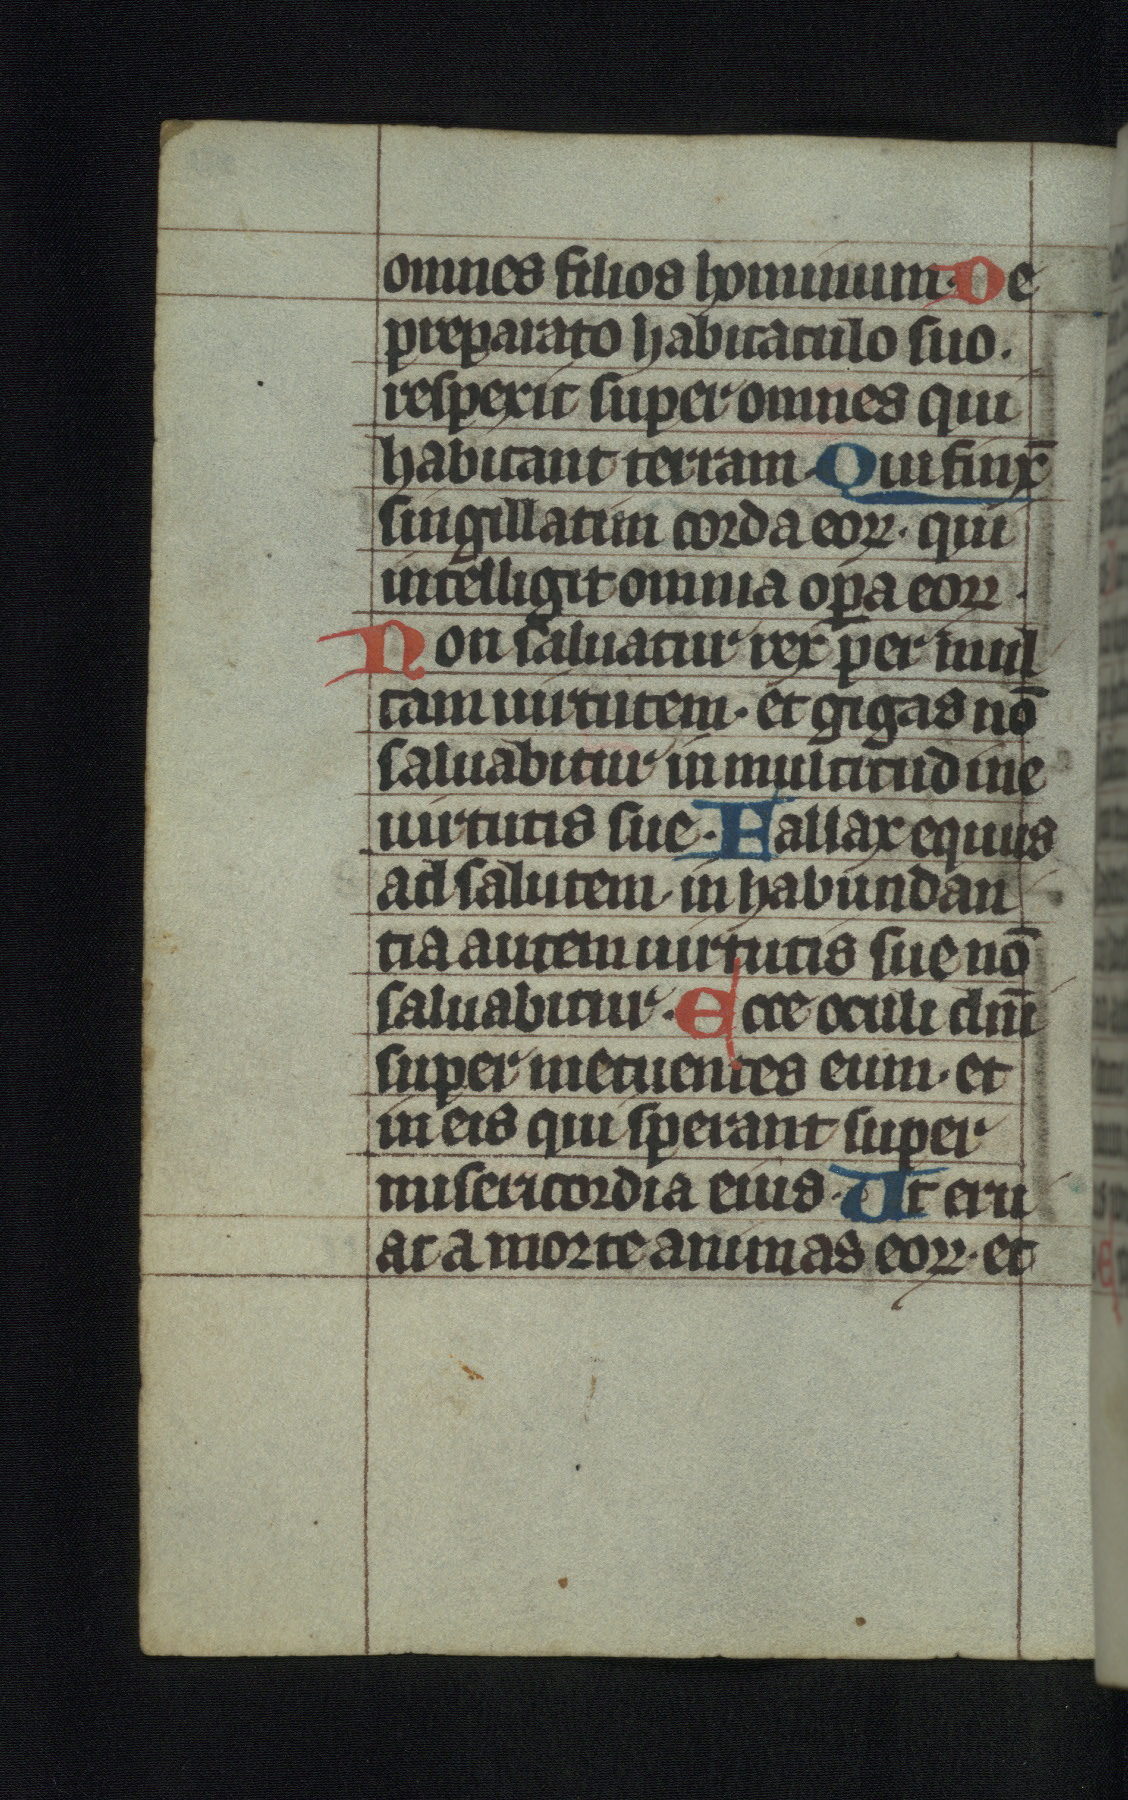 omnes filios hominum. De
preparato habitaculo suo.
respexit super omnes qui
habitant terram. Qui finx̄
singillatim corda eoꝝ. qui
intelligit omnia oꝑa eoꝝ.
Non saluatur rex per mul
tam uirtutem. et gigas nō
saluabitur in multitudine
uirtutis sue. Fallax equus
ad salutem. in habundan
tia autem uirtutis sue nō
saluabitur. Ecce oculi dn̄i
super metuentes eum. et
in eis qui sperant super
misericordia eius. Ut eru
at a morte animas eoꝝ. et